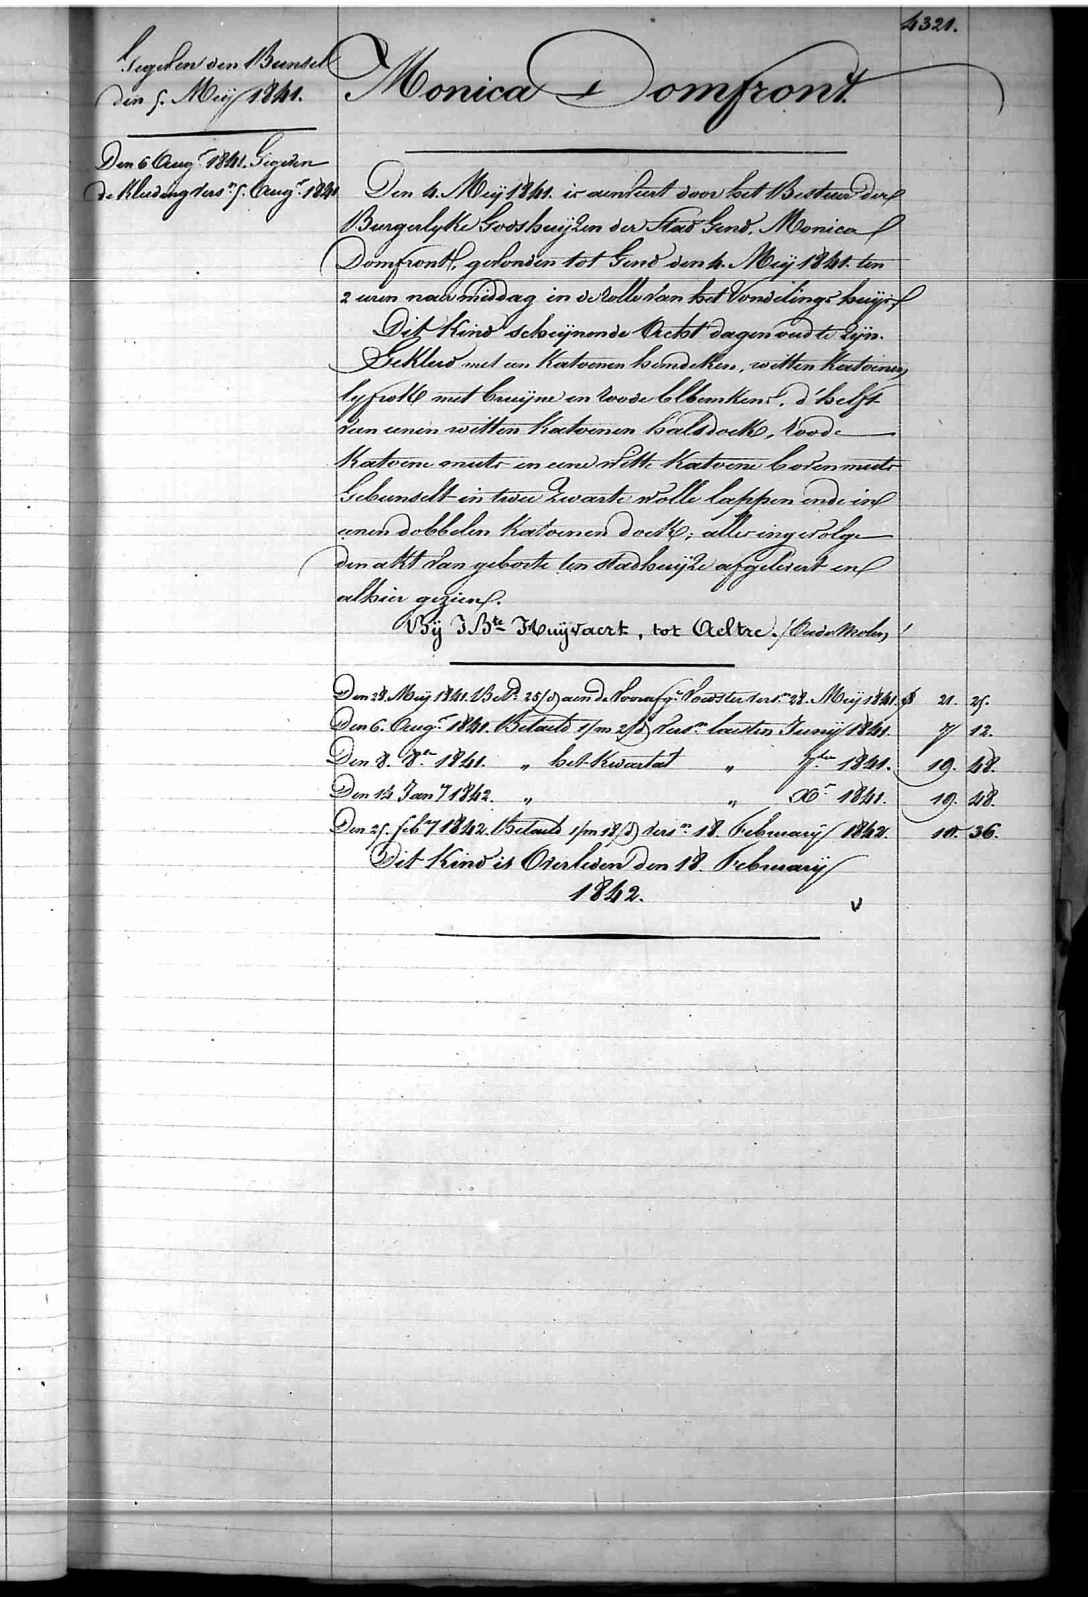 4321.
Gegeven den Bunsel
den 5. Meij 1841.
Den 6 Augt 1841. Gegeven
de Kleeding versn 5. Augt 1841
Monica Domfront.
Den 4. Meij 1841. is aenveert door het Bestuer der
Burgerlyke Godshuijzen der Stad Gend, Monica
Domfront, gevonden tot Gend den 4. Meij 1841. ten
2 uren naer middag in de rolle van het Vondelings huijs,
Dit Kind scheijnende Acht dagen oud te zijn.
Gekleed met een Katoenen hemdeken, witten Katoenen
lyfrok met bruijne en roode blbemkens, d'helft
van eenen witten Katoenen halsdoek, roode
Katoene muts en eene witte Katoene boven muts
Gebunselt in twee zwarte wolle lappen ende in
eenen dobbelen Katoenen doek; alles ingevolge
den akt van geboorte ten stadhuijze afgelevert en
alhier gezien.
Bij J Bte Huijvaert, tot Aeltre. (Oude Molen)
Den 28. Meij 1841. Betd. 25/d aen de Voorafge Voedster versn 28. Meij 1841. 21. 25.
Den 6. Augt 1841. Betaeld 1/m 2/d versn laesten Junij 1841. 7 12.
Den 8. 8er 1841. „ het Kwartal „ 7ber 1841. 19. 48.
Den 14 Jany 1842. „ „ Xr 1841. 19. 48.
Den 25. feby 1842. Betaeld 1/m 18/d versn 18. February 1842. 10. 36.
Dit Kind is Overleden den 18. February
1842.